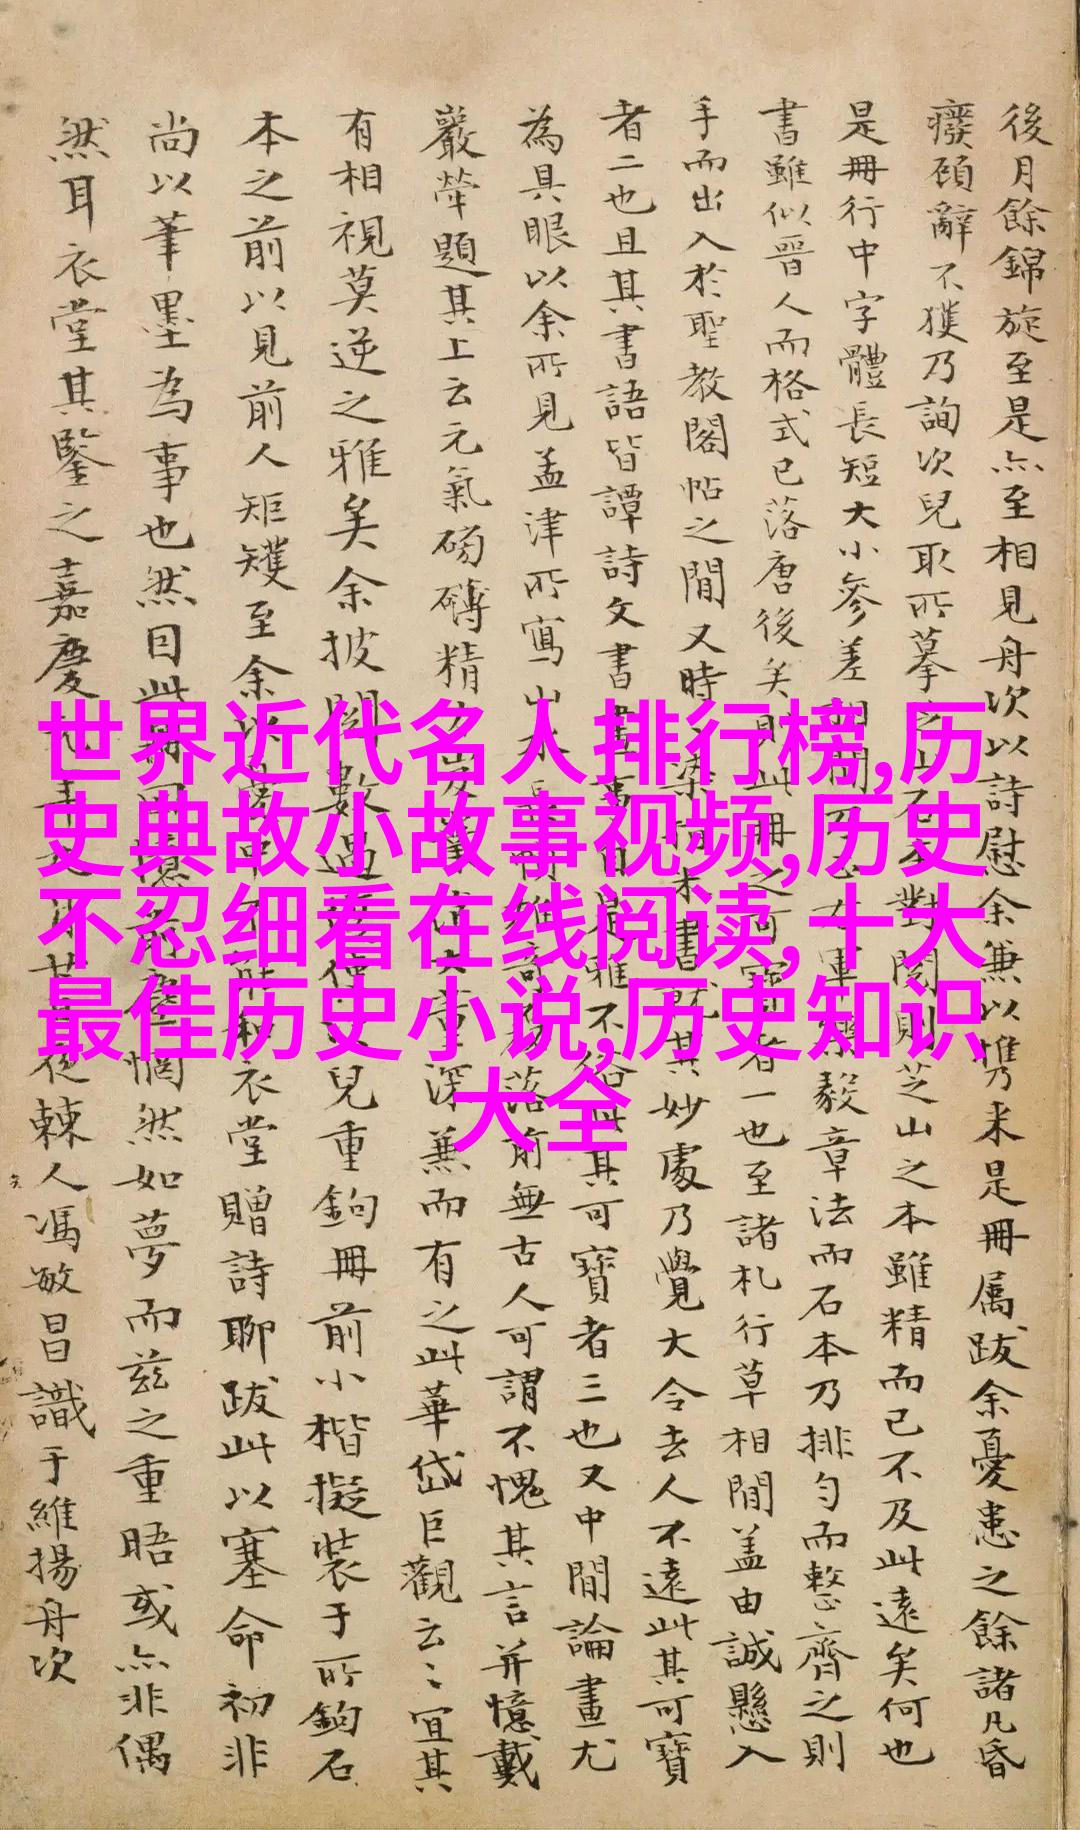 後月餘錦旋至是亦至相見舟次以詩慰余兼以携来是冊属跋余憂患之餘諸凡昏
癈頎辭不獲乃詢次兒取所摹之山石本對閱則芝山之本雖精而已不及此遠矣何也
是冊行中字體長短大小參差毅章法而石本乃排勻而整齊之則
書雖似晉人而格式已落唐後矣則此冊之可寶者一也至諸札行草相間蓋由誠懸入
手而出入於聖教閣帖之間又時其妙處乃覺大令去人不遠此其可寶
者二也且其書語皆譚詩文書畫事自是雅不俗此其可寶者三也又中間論畫尤
為具眼以余所見孟津所寫山水落前無古人可謂不愧其言并憶戴
巖犖題其上云元氣磅礴精深兼而有之此華岱巨觀云々宜其
有相視莫逆之雅矣余披閱數過兒重鉤冊前小楷擬裝于所鉤石
本之前以見前人矩矱至余以衣堂贈詩聊跋此以塞命初非
尚以筆墨為事也然目此冊回憶前塵惘然如夢而茲之重晤或亦非偶
然耳衣堂其鑒之嘉慶夜棘人馮敏昌識于維揚舟次
世界近代名人排行榜,历
史典故小故事视频,历史
不忍细看在线阅读,十大
最佳历史小说,历史知识
大全